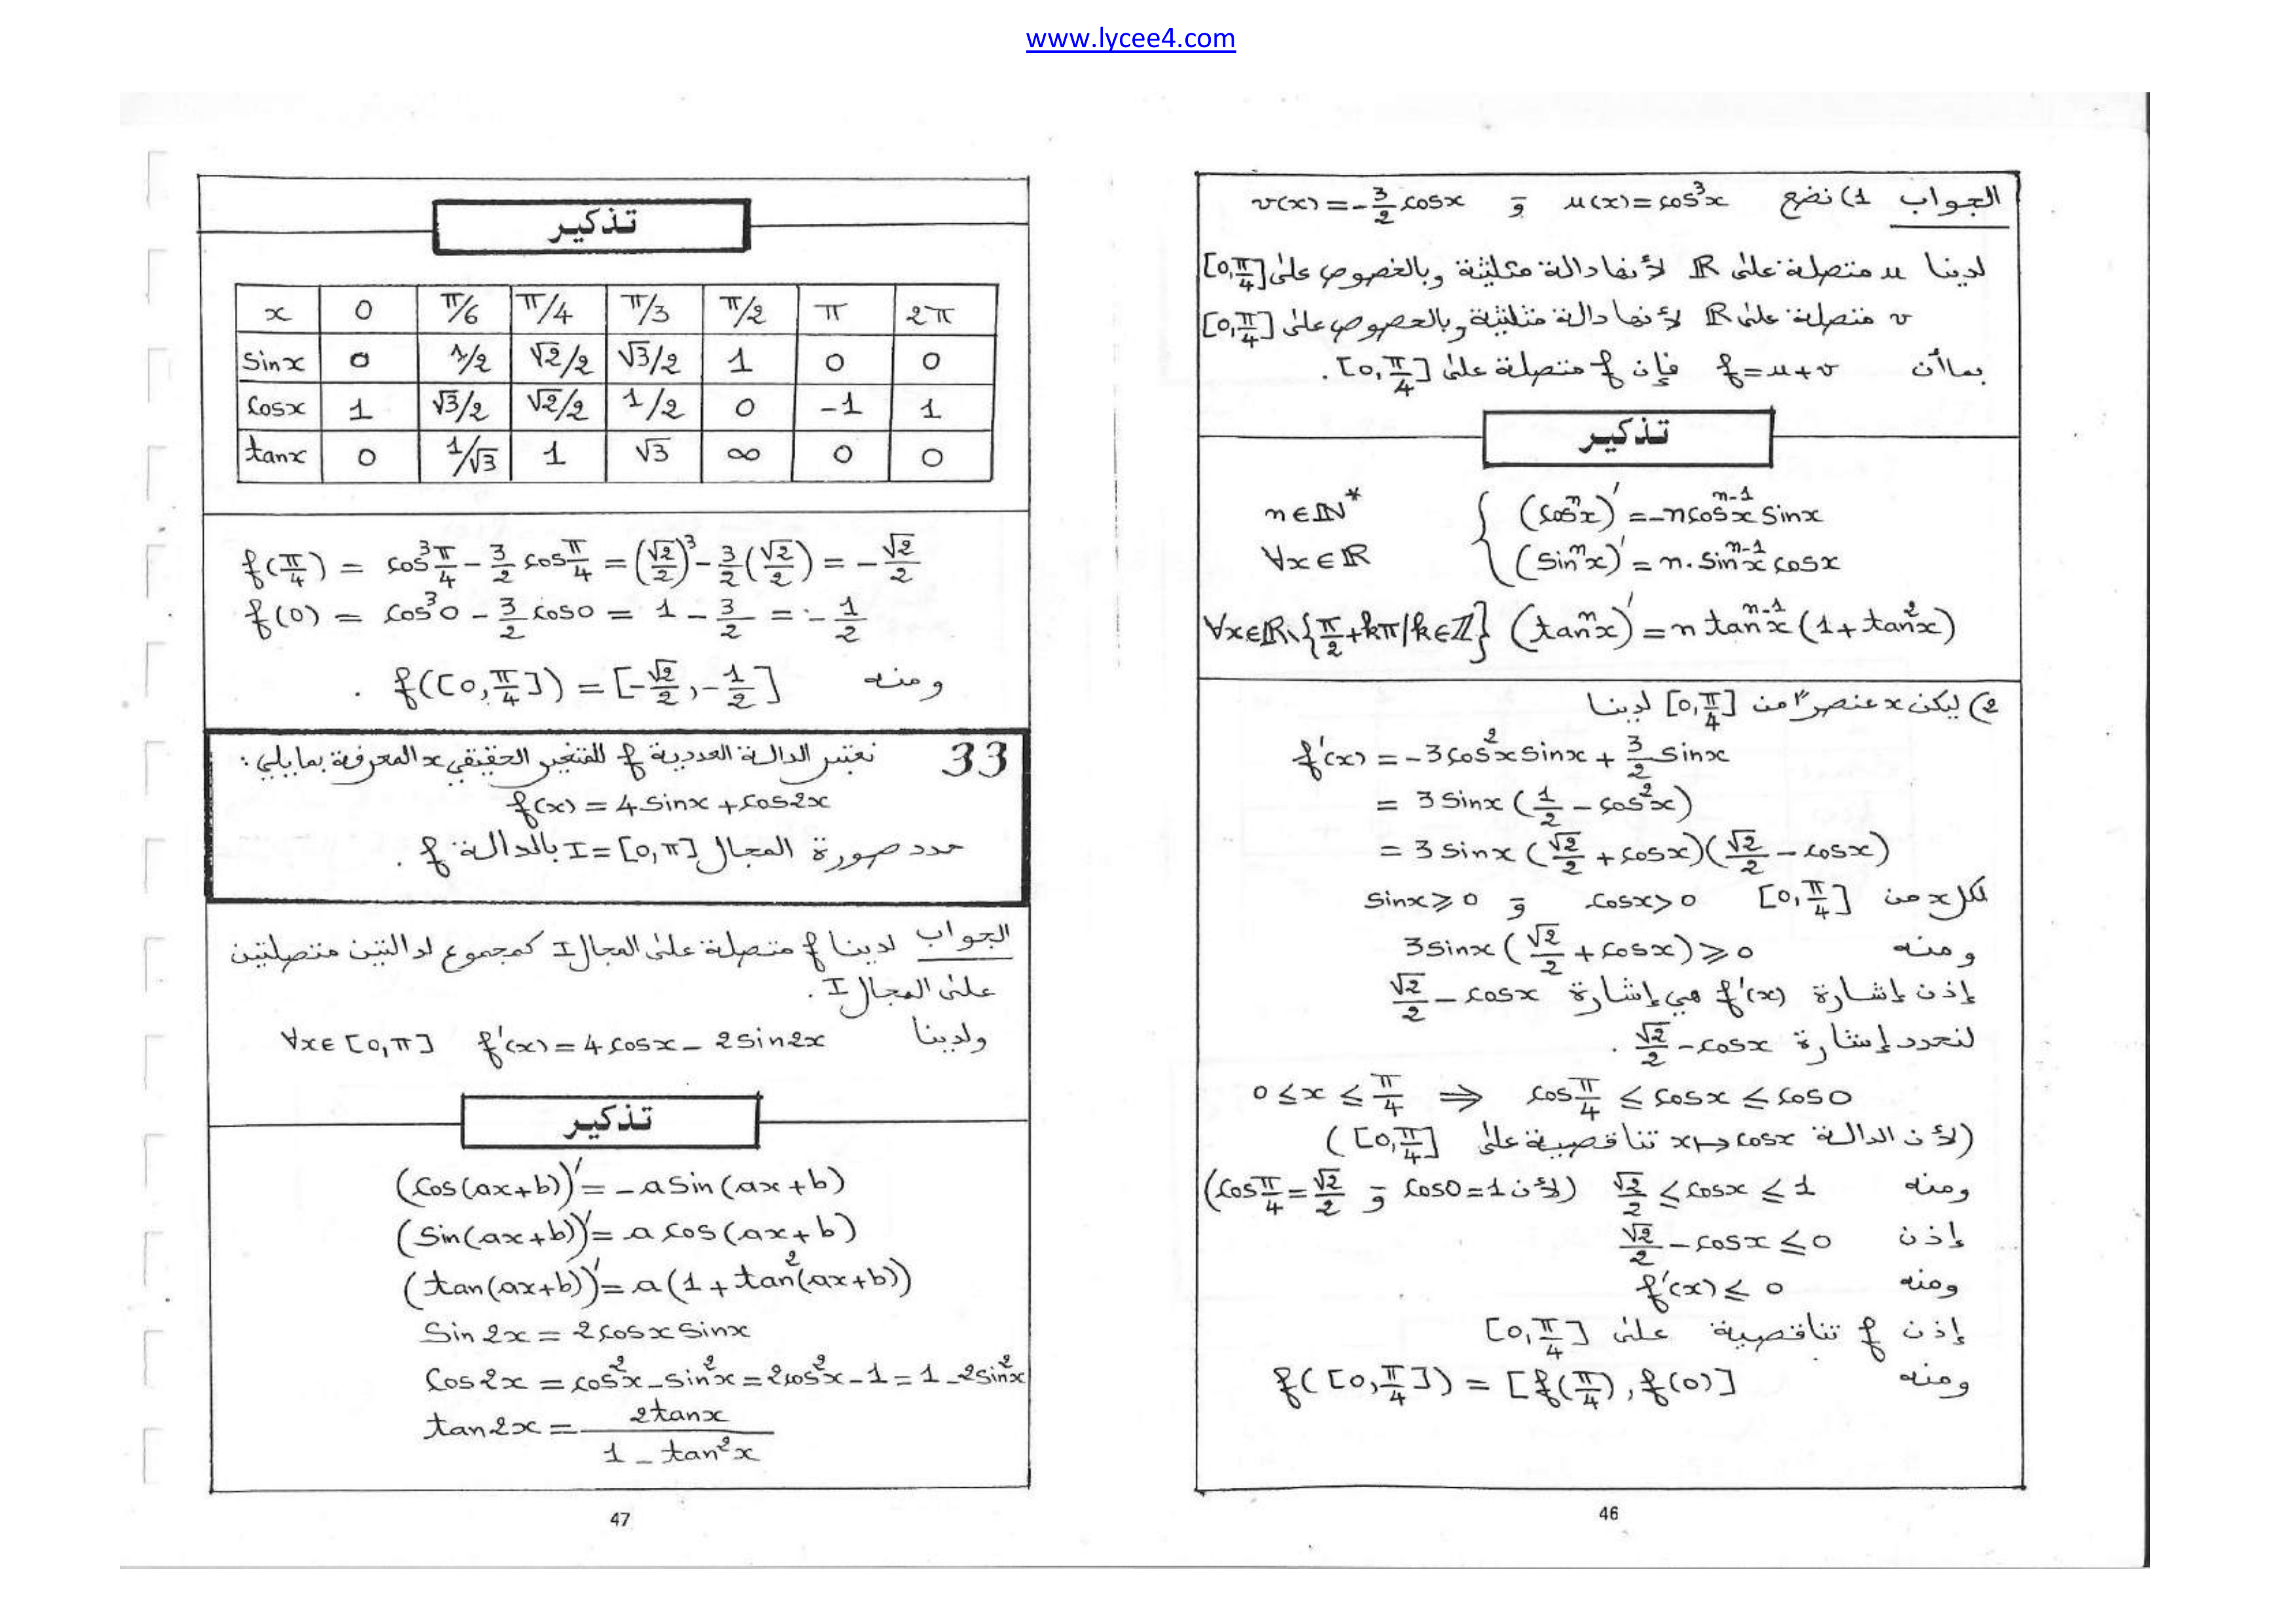 www.lycee4.com
الجواب 1) نضع u(x)=cos³x و v(x)=-3/2 cosx
لدينا u متصلة على ℝ لأنها دالة مثلثية وبالخصوص على [0,π/4]
v متصلة على ℝ لأنها دالة مثلثية وبالخصوص على [0,π/4]
بما أن f=u+v فإن f متصلة على [0,π/4].
تذكير
n∈ℕ* (cosⁿx)'=-ncosⁿ⁻¹x sinx
∀x∈ℝ (sinⁿx)'=n.sinⁿ⁻¹x cosx
∀x∈ℝ\{π/2+kπ/k∈ℤ} (tanⁿx)'=n tanⁿ⁻¹x(1+tan²x)
2) ليكن x عنصرا من [0,π/4] لدينا
f'(x)=-3cos²x sinx+3/2 sinx
= 3sinx(1/2-cos²x)
= 3sinx(√2/2+cosx)(√2/2-cosx)
لكل x من [0,π/4] cosx>0 و sinx⩾0
ومنه 3sinx(√2/2+cosx)⩾0
إذن إشارة f'(x) هي إشارة √2/2-cosx
لنحدد إشارة √2/2-cosx.
0≤x≤π/4 ⇒ cosπ/4≤cosx≤cos0
(لأن الدالة x↦cosx تناقصية على [0,π/4])
ومنه √2/2≤cosx≤1 (لأن cos0=1 و cosπ/4=√2/2)
إذن √2/2-cosx≤0
ومنه f'(x)≤0
إذن f تناقصية على [0,π/4]
ومنه f([0,π/4])=[f(π/4),f(0)]
46
تذكير
x 0 π/6 π/4 π/3 π/2 π 2π
sinx 0 1/2 √2/2 √3/2 1 0 0
cosx 1 √3/2 √2/2 1/2 0 -1 1
tanx 0 1/√3 1 √3 ∞ 0 0
f(π/4)=cos³π/4-3/2 cosπ/4=(√2/2)³-3/2(√2/2)=-√2/2
f(0)=cos³0-3/2 cos0=1-3/2=-1/2
ومنه f([0,π/4])=[-√2/2,-1/2].
33 نعتبر الدالة العددية f للمتغير الحقيقي x المعرفة بمايلي:
f(x)=4sinx+cos2x
حدد صورة المجال I=[0,π] بالدالة f.
الجواب لدينا f متصلة على المجال I كمجموع لدالتين متصلتين
على المجال I.
ولدينا ∀x∈[0,π] f'(x)=4cosx-2sin2x
تذكير
(cos(ax+b))'=-asin(ax+b)
(sin(ax+b))'=acos(ax+b)
(tan(ax+b))'=a(1+tan²(ax+b))
sin2x=2cosx sinx
cos2x=cos²x-sin²x=2cos²x-1=1-2sin²x
tan2x=2tanx/(1-tan²x)
47